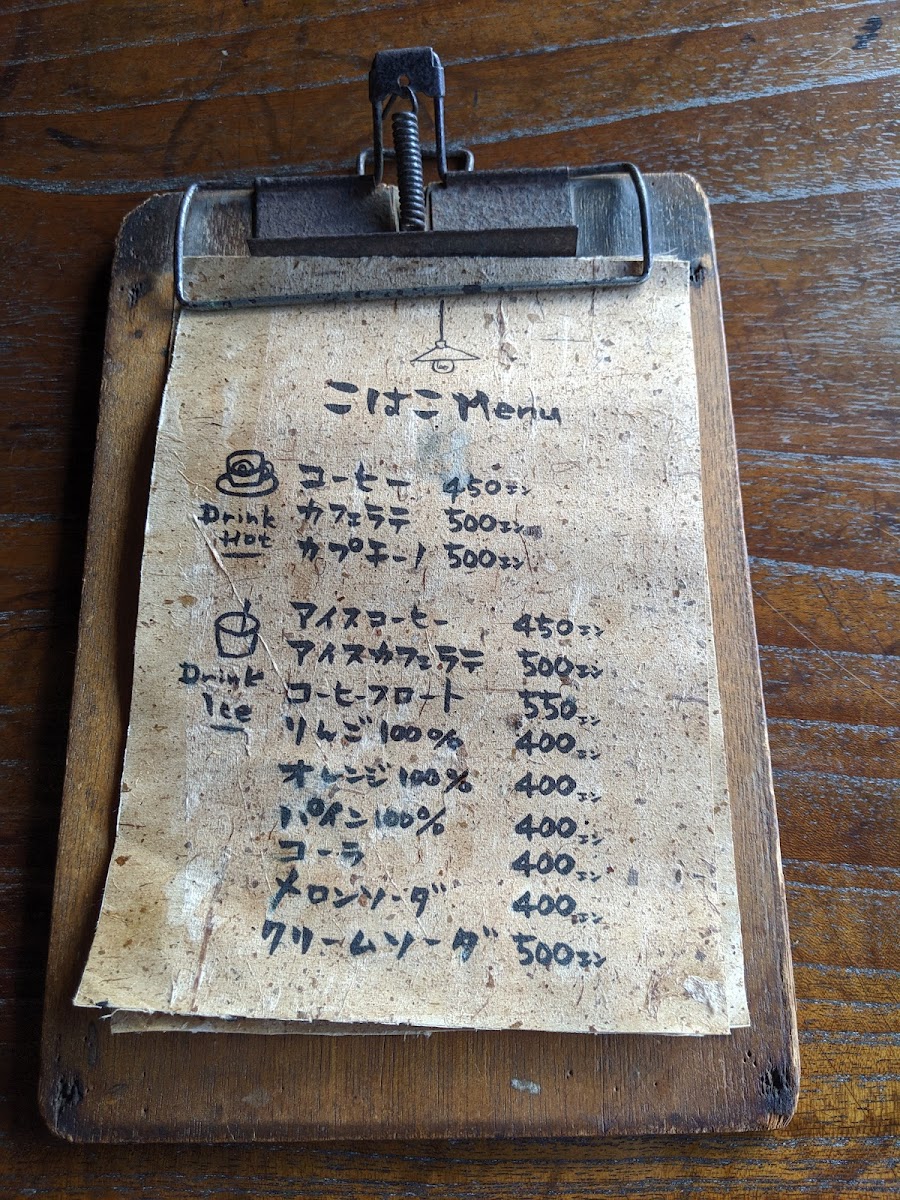 こはこ Menu
Drink Hot
コーヒー 450エン
カフェラテ 500エン
カプチーノ 500エン
Drink Ice
アイスコーヒー 450エン
アイスカフェラテ 500エン
コーヒーフロート 550エン
りんご100% 400エン
オレンジ100% 400エン
パイン100% 400エン
コーラ 400エン
メロンソーダ 400エン
クリームソーダ 500エン